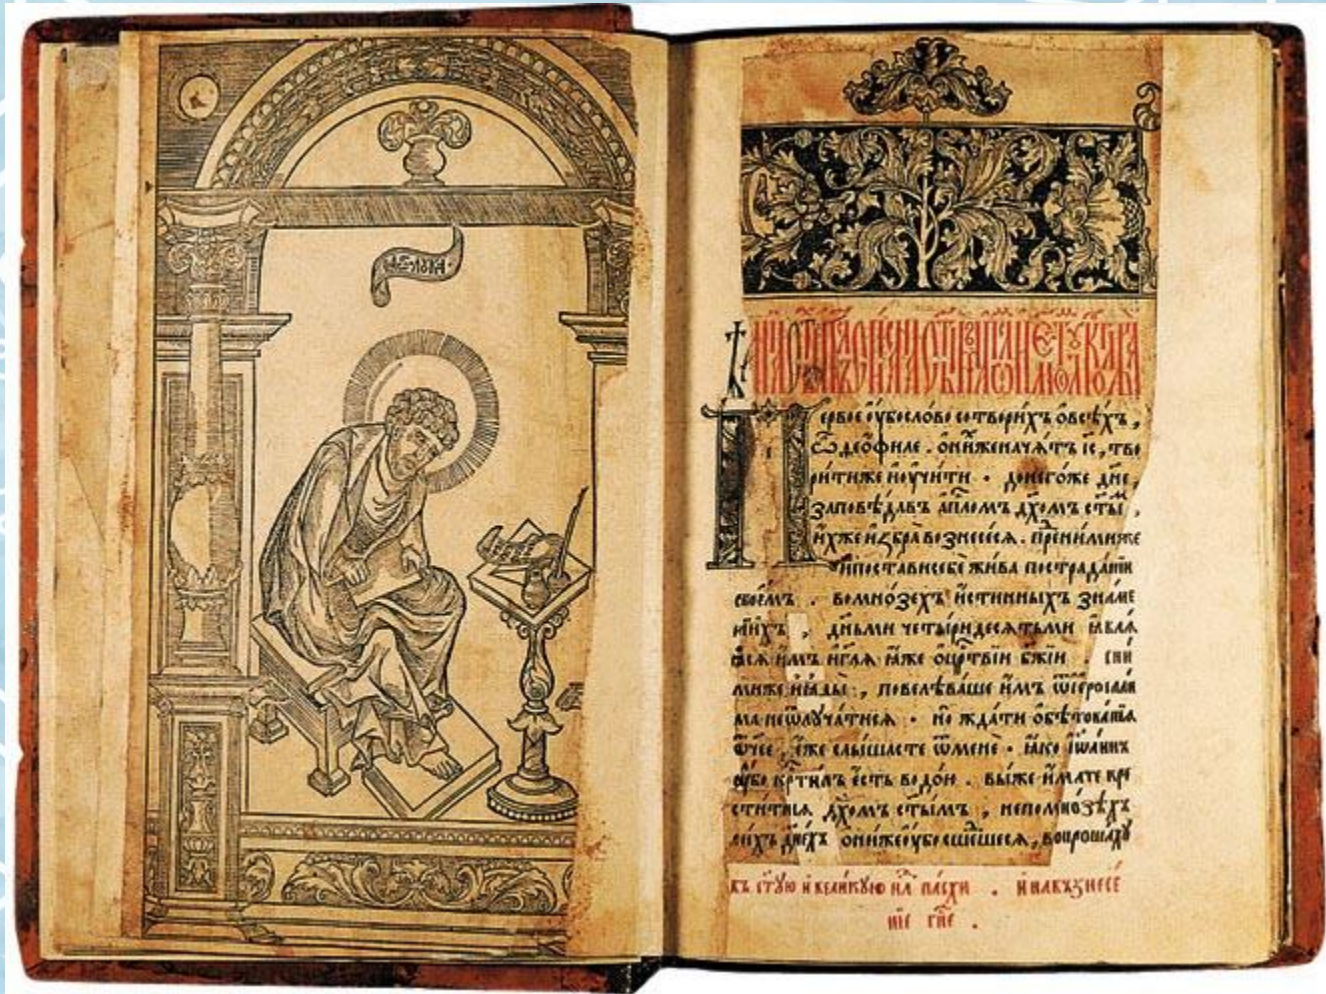 Первое ѹ҆бо слово сотвори́хъ ѡ҆ всѣ́хъ,
ѽ деѻ҆́филе . ѻ҆ ни́хже начѧ́тъ і҆с҃, тво
ри́тиже и҆ ѹ҆чи́ти · донего́же дн҃е,
заповѣ́давъ а҆пⷭ҇ломъ дх҃омъ ст҃ы́мъ,
и҆́хже и҆збра̀ вознесе́сѧ . пред̾ ни́миже
и҆ поста́ви себѐ жи́ва по страда́нїи
свое́мъ . во мно́зехъ и҆́стинныхъ зна́ме
нїихъ , де́ньми четы́ридесѧтьми ꙗ҆влѧ́
ѧсѧ и҆̀мъ и҆ гл҃ѧ ꙗ҆́же ѡ҆ црⷭ҇твїи бж҃їи . сни́
миже и҆ ꙗ҆ды̀ , повелѣва́ше и҆̀мъ ѿ і҆еросали
ма не ѿлꙋча́тисѧ · но жда́ти ѻ҆бѣтова́нїѧ
ѻ҆́ч҃ее , е҆́же слы́шасте ѿ менѐ · ꙗ҆́ко і҆ѡ҆а́ннъ
ѹ҆́бо крⷭ҇ти́лъ є҆́сть водо́ю . вы́же и҆́мате кре
сти́тисѧ дх҃омъ ст҃ы́мъ , не по мно́зѣхъ
си́хъ дн҃е́хъ ѻ҆ни́же ѹ҆́бо сше́дшеесѧ, вопроша́хꙋ
въ ст҃ꙋ́ю и҆ вели́кꙋю нⷣлю па́схи . и҆ на възнесе́
нїе гн҃е .